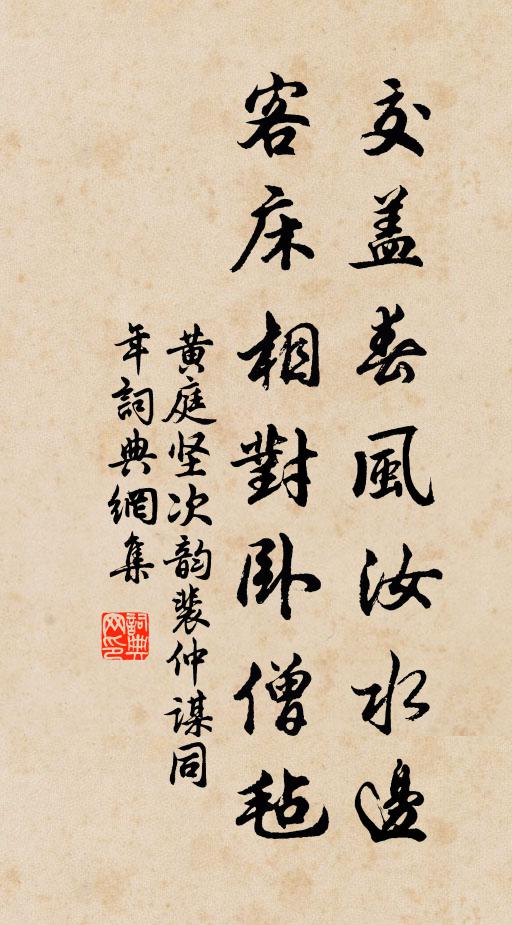 交盖春風汝水邊
客床相對卧僧毡
黄庭坚次韵裴仲謀同
年詞典網集
詞典网印